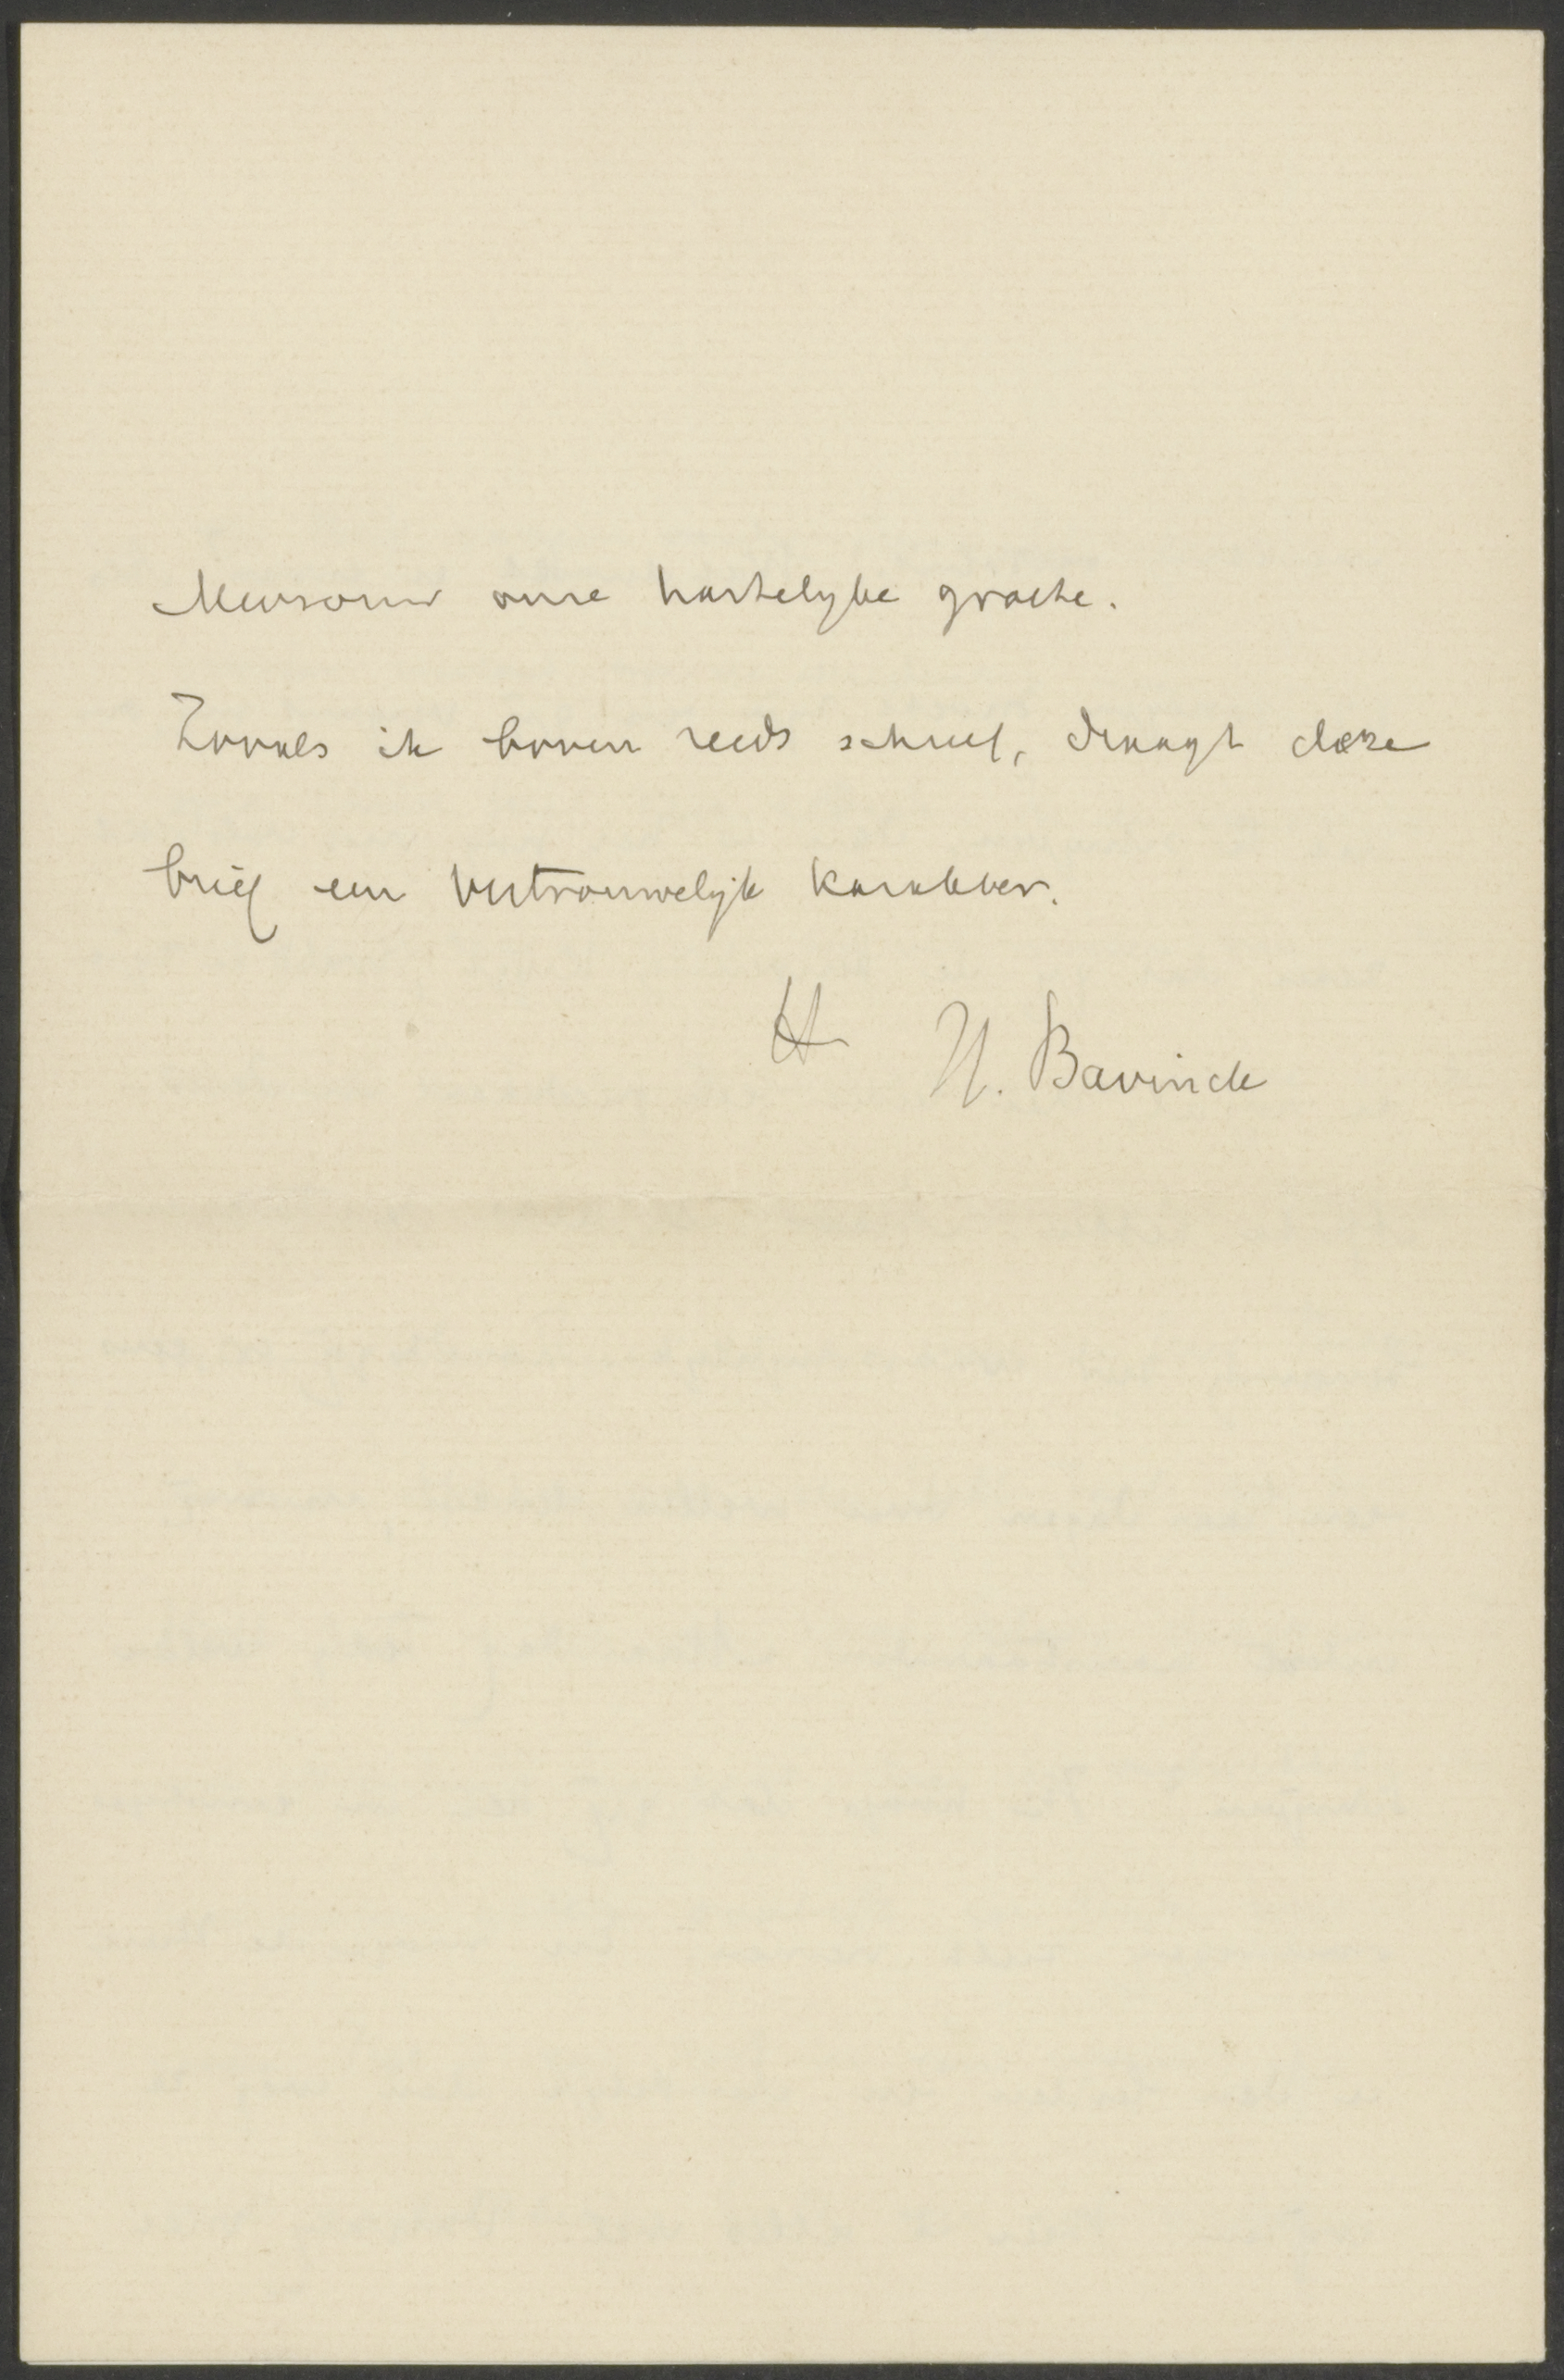 Mevrouw onze hartelijke groete.
Zooals ik boven reeds schreef, draagt deze
brief een vertrouwelijk karakter.
tt H. Bavinck